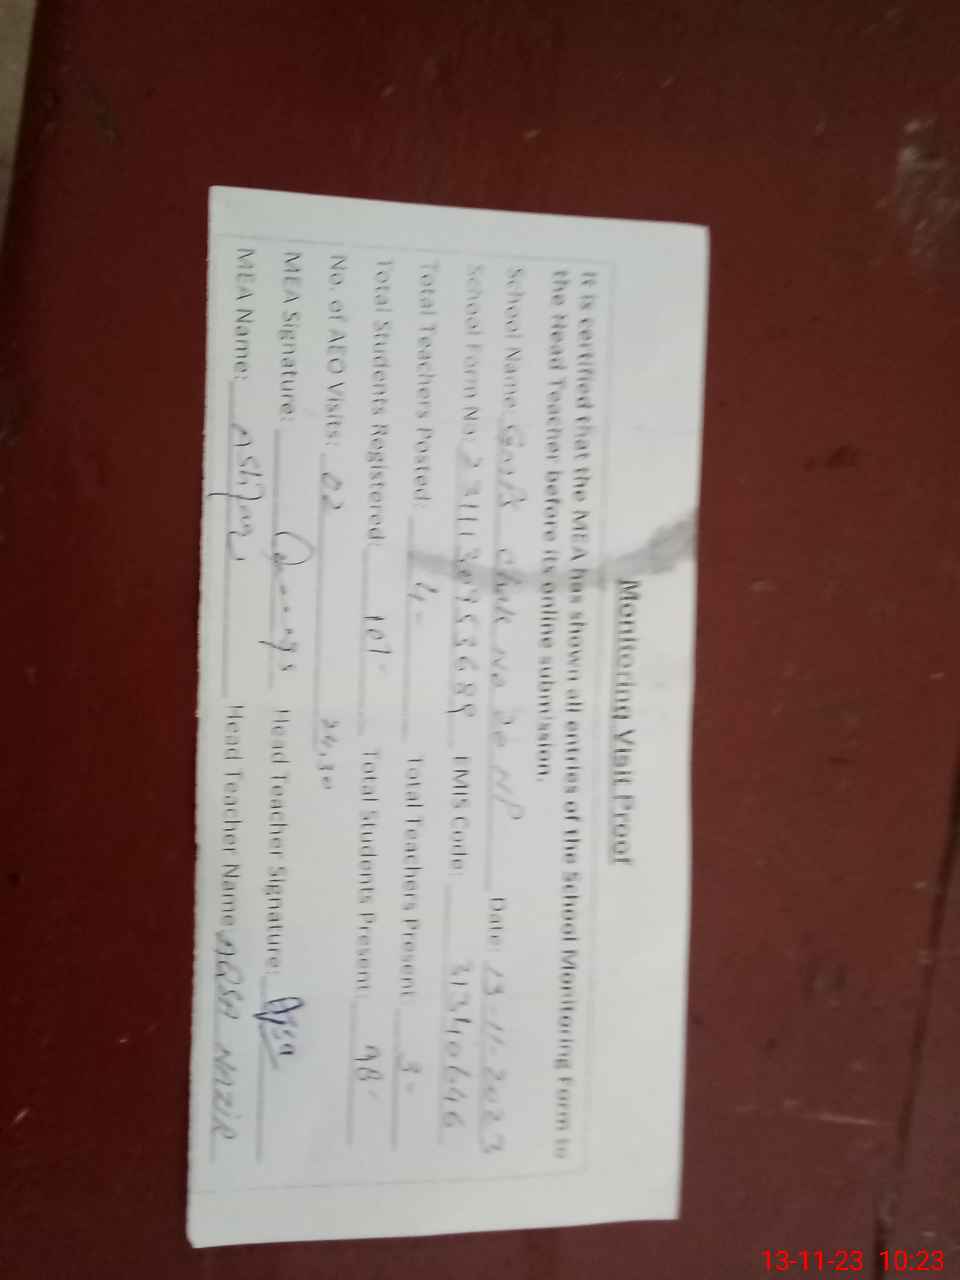 Monitoring Visit Proof
It is certified that the MEA has shown all entries of the School Monitoring Form to
the Head Teacher before its online submission.
School Name: Chak No 20 NP Date: 13-11-2023
School Form No. EMIS Code: 31340646
Total Teachers Posted: 4- Total Teachers Present 3-
Total Students Registered: 101 Total Students Present: 98
No. of AEO Visits: 02
MEA Signature: Head Teacher Signature: Aqsa
MEA Name: Head Teacher Name: AQSA NAZIR
13-11-23 10:23